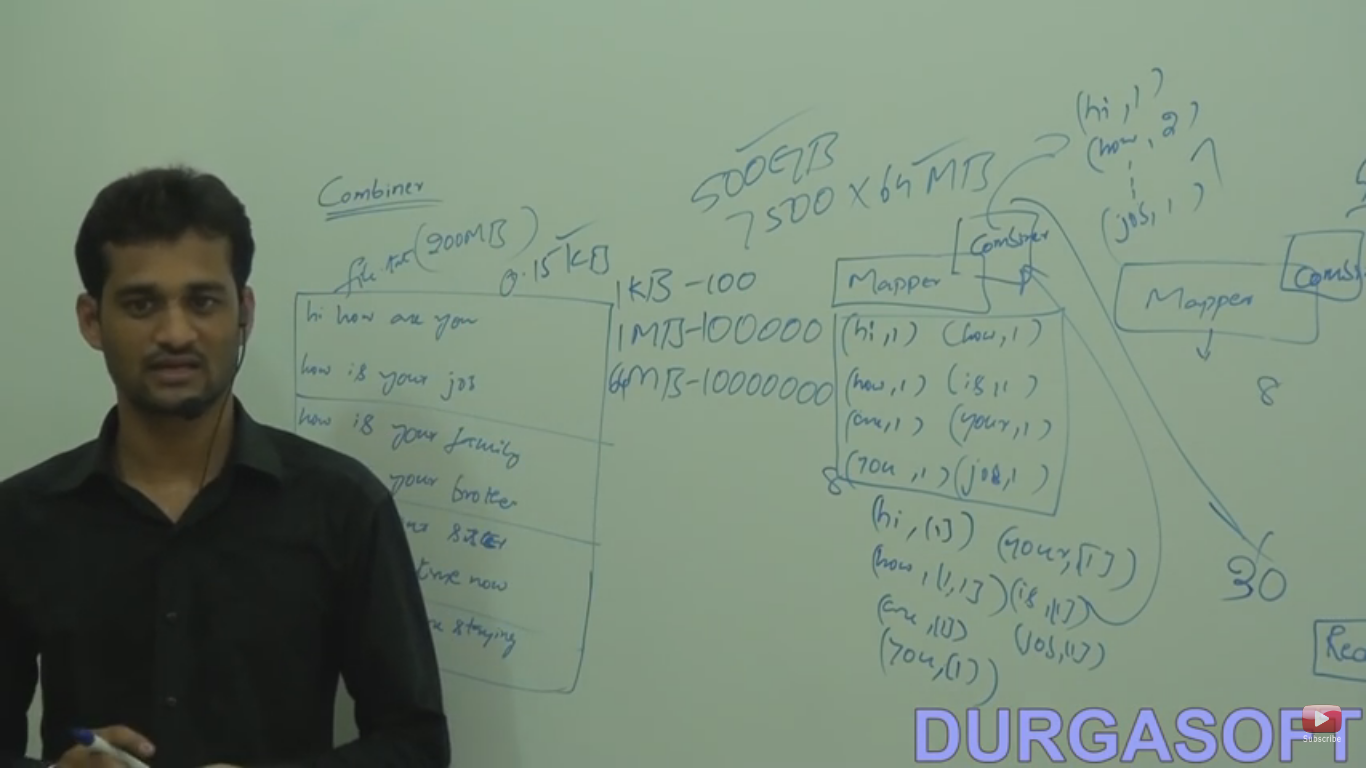 Combiner
file.txt (200MB)
0.15 KB
hi how are you
how is your job
how is your family
your brother
time now
staying
500GB
7500 X 64 MB
1KB - 100
1MB - 100000
64MB - 10000000
Mapper
Combiner
(hi,1) (how,1)
(how,1) (is,1)
(are,1) (your,1)
(you,1) (job,1)
8
(hi,[1]) (your,[1])
(how,[1,1]) (is,[1])
(are,[1]) (job,[1])
(you,[1])
(hi,1)
(how,2)
(job,1)
Mapper
Combi
8
30
Red
DURGASOFT
Subscribe